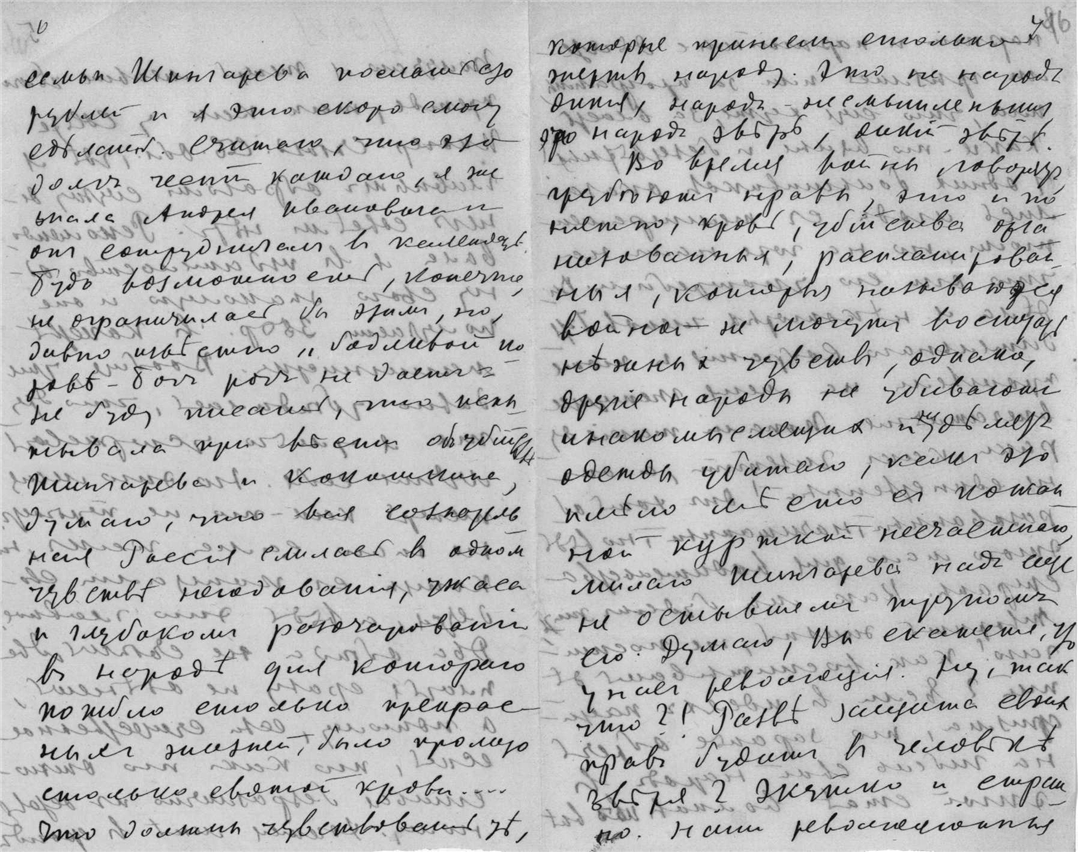 6
семьи Шингарева послать сто
рублей и я это скоро смогу
сделать. Считаю, что это
долгъ чести каждаго, я же
знала Андрея Ивановича и
онъ сотрудничалъ въ
Будь возможность, конечно,
не ограничилась бы этимъ, но,
давно извѣстно „бодливой ко
ровѣ – Богъ рогъ не даетъ"
не буду писать, что испы
тывала при вѣсти объ убійствѣ
Шингарева и Кокошкина,
думаю, что вся сознатель
ная Россія слилась въ одномъ
чувствѣ негодованія, ужаса
и глубокаго разочарованія
въ народѣ для котораго
погибло столько прекрас
ныхъ жизней, было пролито
столько святой крови....
Что должны чувствовать тѣ,
7
96
которые принесли столько
жертвъ народу. Это не народъ
дитя, народъ – несмышленышъ
это народъ звѣрь, дикій звѣрь.
Во время войны, говорятъ
грубѣютъ нравы, это и по
нятно, кровь, убійства орга
низованныя, распланирован
ныя, которыя называются
войной не могутъ воспитать
нѣжныхъ чувствъ, однако,
другіе народы не убиваютъ
инакомыслящихъ и не дѣлятъ
одежды убитаго, какъ это
имѣло мѣсто съ кожан
ной курткой несчастнаго,
милаго Шингарева надъ еще
не остывшимъ трупомъ
его. Думаю, Вы скажете, что
у насъ революція. Ну, такъ
что?! Развѣ защита своихъ
правъ будитъ въ человѣкѣ
звѣря? Жутко и страш
но. Наши революціонныя